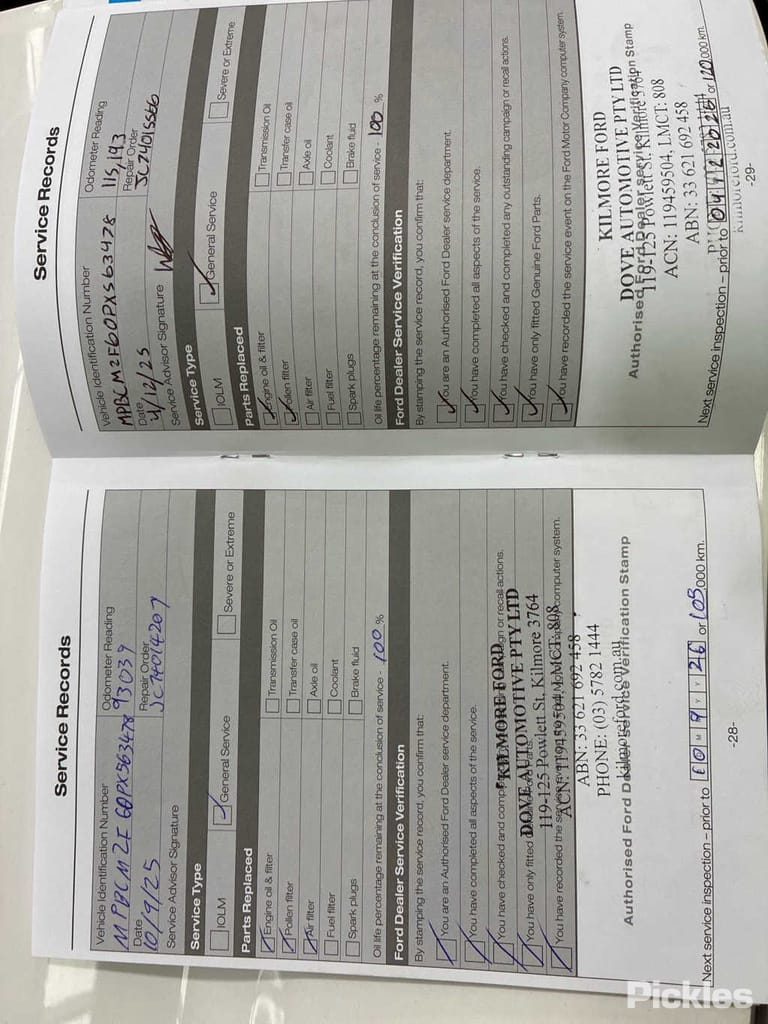 Service Records
Vehicle Identification Number
Odometer Reading
MPBCM2F60PX563478 93039
Date
Repair Order
10/9/25
JC24014207
Service Advisor Signature
Service Type
IOLM
General Service
Severe or Extreme
Parts Replaced
Engine oil & filter
Transmission Oil
Pollen filter
Transfer case oil
Air filter
Axle oil
Fuel filter
Coolant
Spark plugs
Brake fluid
Oil life percentage remaining at the conclusion of service - 100 %
Ford Dealer Service Verification
By stamping the service record, you confirm that:
You are an Authorised Ford Dealer service department.
You have completed all aspects of the service.
You have checked and comp gn or recall actions.
You have only fitted
You have recorded the computer system.
KILMORE FORD
DOVE AUTOMOTIVE PTY LTD
119-125 Powlett St, Kilmore 3764
ACN: 119459504, LMCT: 808
ABN: 33 621 692 458
PHONE: (03) 5782 1444
kilmoreford.com.au
Authorised Ford Dealer service Verification Stamp
Next service inspection – prior to 10 9 26 or 105,000 km.
-28-
Service Records
Vehicle Identification Number
Odometer Reading
MPBCM2F60PX563478 115,193
Date
Repair Order
4/12/25
JC24015566
Service Advisor Signature
Service Type
IOLM
General Service
Severe or Extreme
Parts Replaced
Engine oil & filter
Transmission Oil
Pollen filter
Transfer case oil
Air filter
Axle oil
Fuel filter
Coolant
Spark plugs
Brake fluid
Oil life percentage remaining at the conclusion of service - 100 %
Ford Dealer Service Verification
By stamping the service record, you confirm that:
You are an Authorised Ford Dealer service department.
You have completed all aspects of the service.
You have checked and completed any outstanding campaign or recall actions.
You have only fitted Genuine Ford Parts.
You have recorded the service event on the Ford Motor Company computer system.
KILMORE FORD
DOVE AUTOMOTIVE PTY LTD
Authorised Ford Dealer service Verification Stamp
119-125 Powlett St, Kilmore 3764
ACN: 119459504, LMCT: 808
ABN: 33 621 692 458
Next service inspection – prior to 04 12 2025 or 120,000 km.
kilmoreford.com.au
-29-
Pickles